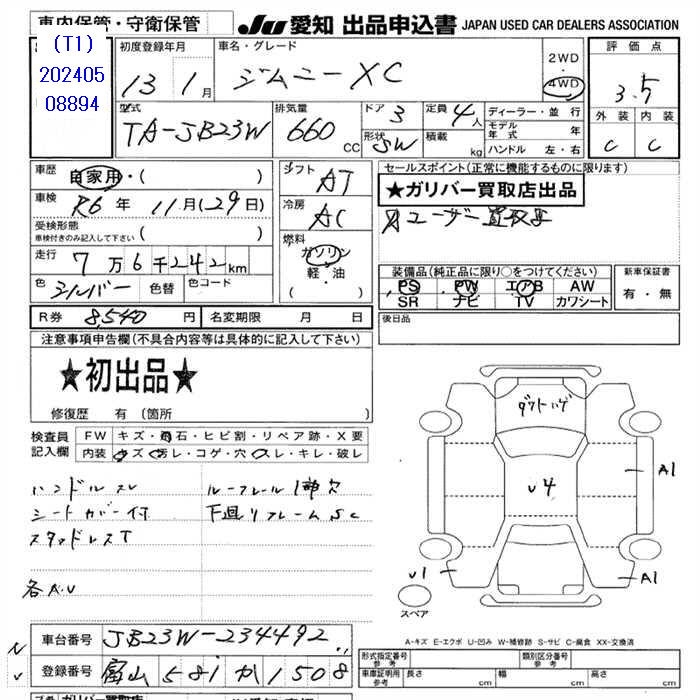 車内保管・守衛保管
JU 愛知 出品申込書 JAPAN USED CAR DEALERS ASSOCIATION
(T1)
202405
08894
初度登録年月 車名・グレード
13 1月 ジムニー XC
2WD
・
4WD
評価点
3.5
外装 内装
C C
型式 排気量 ドア 定員
TA-JB23W 660 CC 3 4人
形状 SW 積載 kg
ディーラー・並行
モデル年式 年
ハンドル 左・右
車歴 自家用・( )
車検 R6年 11月(29日)
受検形態
車検付きのみ記入して下さい ( )
走行 7万6千242km
色 シルバー 色替 色コード
シフト AT
冷房 AC
燃料 ガソリン
軽・油
( )
セールスポイント(正常に機能するものに限ります)
★ガリバー買取店出品
ユーザー買取車
装備品(純正品に限り○をつけてください)
PS PW エアB AW
SR ナビ TV カワシート
新車保証書
有・無
R券 8,540円 名変期限 月 日
後日品
注意事項申告欄(不具合内容等は具体的に記入して下さい)
★初出品★
修復歴 有(箇所 )
検査員
記入欄
FW キズ・飛石・ヒビ割・リペア跡・X要
内装 キズ・汚レ・コゲ・穴・スレ・キレ・破レ
ハンドルスレ
シートカバー付
スタッドレスT
各A.U
ルーフレール1部欠
下廻リフレームSC
ダクトハゲ
A1
U4
U1
A1
スペア
A-キズ E-エクボ U-凹み W-補修跡 S-サビ C-腐食 XX-交換済
車台番号 JB23W-234492
登録番号 富山 581 か 1508
形式指定番号
参考
類別区分番号
参考
車庫証明用
参考
長さ cm 幅 cm 高さ cm